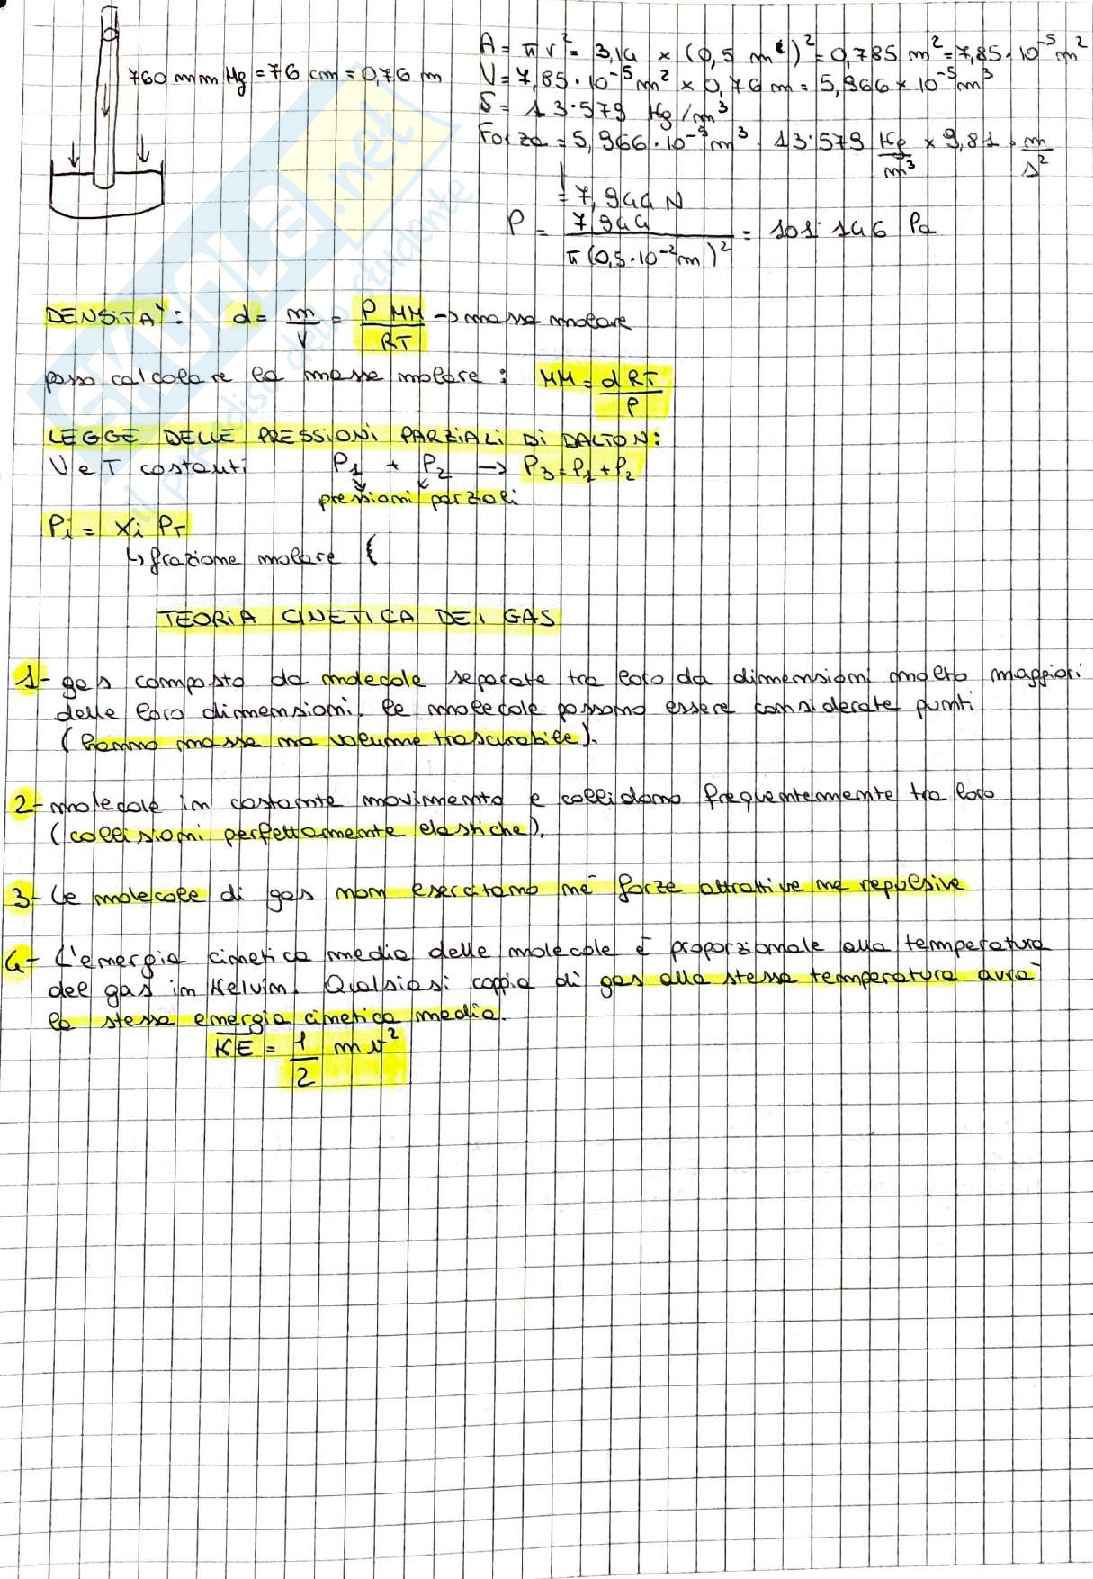 760 mm Hg = 76 cm = 0,76 m
A = π r² = 3,14 × (0,5 m)² = 0,785 m² = 7,85 · 10⁻⁵ m²
V = 7,85 · 10⁻⁵ m² × 0,76 m = 5,966 × 10⁻⁵ m³
δ = 13·579 Kg/m³
Forza = 5,966 · 10⁻⁵ m³ · 13·579 Kg/m³ × 9,81 · m/s²
= 7,944 N
P = 7,944 / π (0,5 · 10⁻² m)² = 101 146 Pa
DENSITA': d = m/V = P MM/RT → massa molare
posso calcolare la massa molare : MM = d RT/P
LEGGE DELLE PRESSIONI PARZIALI DI DALTON:
V e T costanti P₁ + P₂ → P₃ = P₁ + P₂
pressioni parziali
Pi = Xi PT
↳ frazione molare {
TEORIA CINETICA DEI GAS
1- gas composto da molecole separate tra loro da dimensioni molto maggiori
delle loro dimensioni. Le molecole possono essere considerate punti
(hanno massa ma volume trascurabile).
2- molecole in costante movimento e collidono frequentemente tra loro
(collisioni perfettamente elastiche).
3- Le molecole di gas non esercitano né forze attrattive ne repulsive
4- L'energia cinetica media delle molecole è proporzionale alla temperatura
del gas in Kelvin. Qualsiasi coppia di gas alla stessa temperatura avrà
la stessa energia cinetica media.
KE = 1/2 m v²